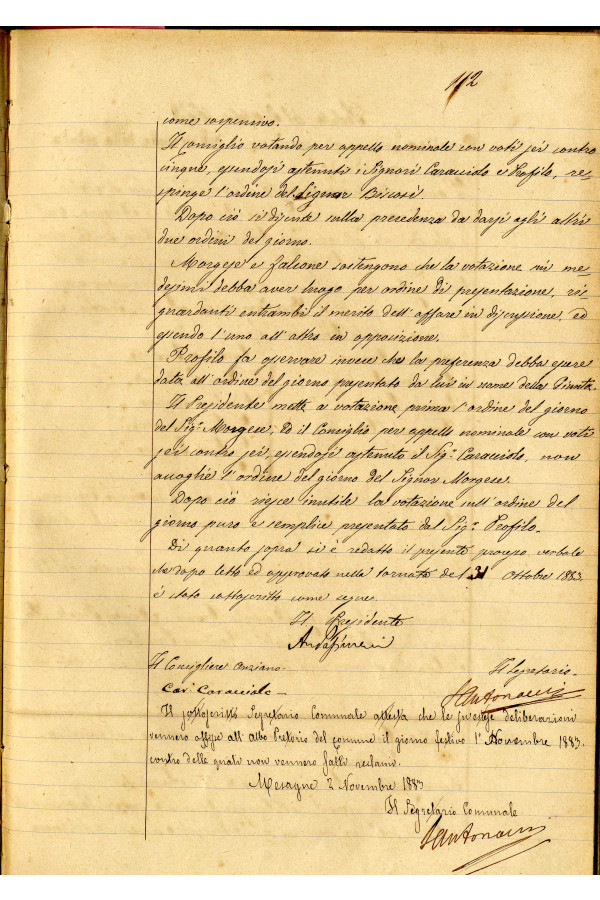 112
come sospensivo.
Il Consiglio votando per appello nominale con voti sei contro
cinque, essendosi astenuti i Signori Caracciolo e Profilo, re-
spinge l'ordine del Signor Biscosi.
Dopo ciò si discute sulla precedenza da darsi agli altri
due ordini del giorno.
Morgese e Falcone sostengono che la votazione sui me-
desimi debba aver luogo per ordine di presentazione, ri-
guardanti entrambi il merito dell'affare in discussione, ed
essendo l'uno all'altro in opposizione.
Profilo fa osservare invece che la preferenza debba essere
data all'ordine del giorno presentato da lui in nome della Giunta.
Il Presidente mette a votazione prima l'ordine del giorno
del Sigr. Morgese, Ed il Consiglio per appello nominale con voti
sei contro sei, essendosi astenuto il Sigr. Caracciolo, non
accoglie l'ordine del giorno del Signor Morgese.
Dopo ciò riesce inutile la votazione sull'ordine del
giorno puro e semplice presentato dal Sigr. Profilo.
Di quanto sopra si è redatto il presente processo verbale
che dopo letto ed approvato nella tornata del 31 Ottobre 1883
è stato sottoscritto come segue.
Il Presidente
Il Consigliere Anziano- Il Segretario-
Car. Caracciolo- Santonacci
Il sottoscritto Segretario Comunale attesta che le suestese deliberazioni
vennero affisse all'Albo Pretorio del comune il giorno festivo 1° Novembre 1883.
contro delle quali non vennero fatti reclami.
Mesagne 2 Novembre 1883
Il Segretario Comunale
Santonacci